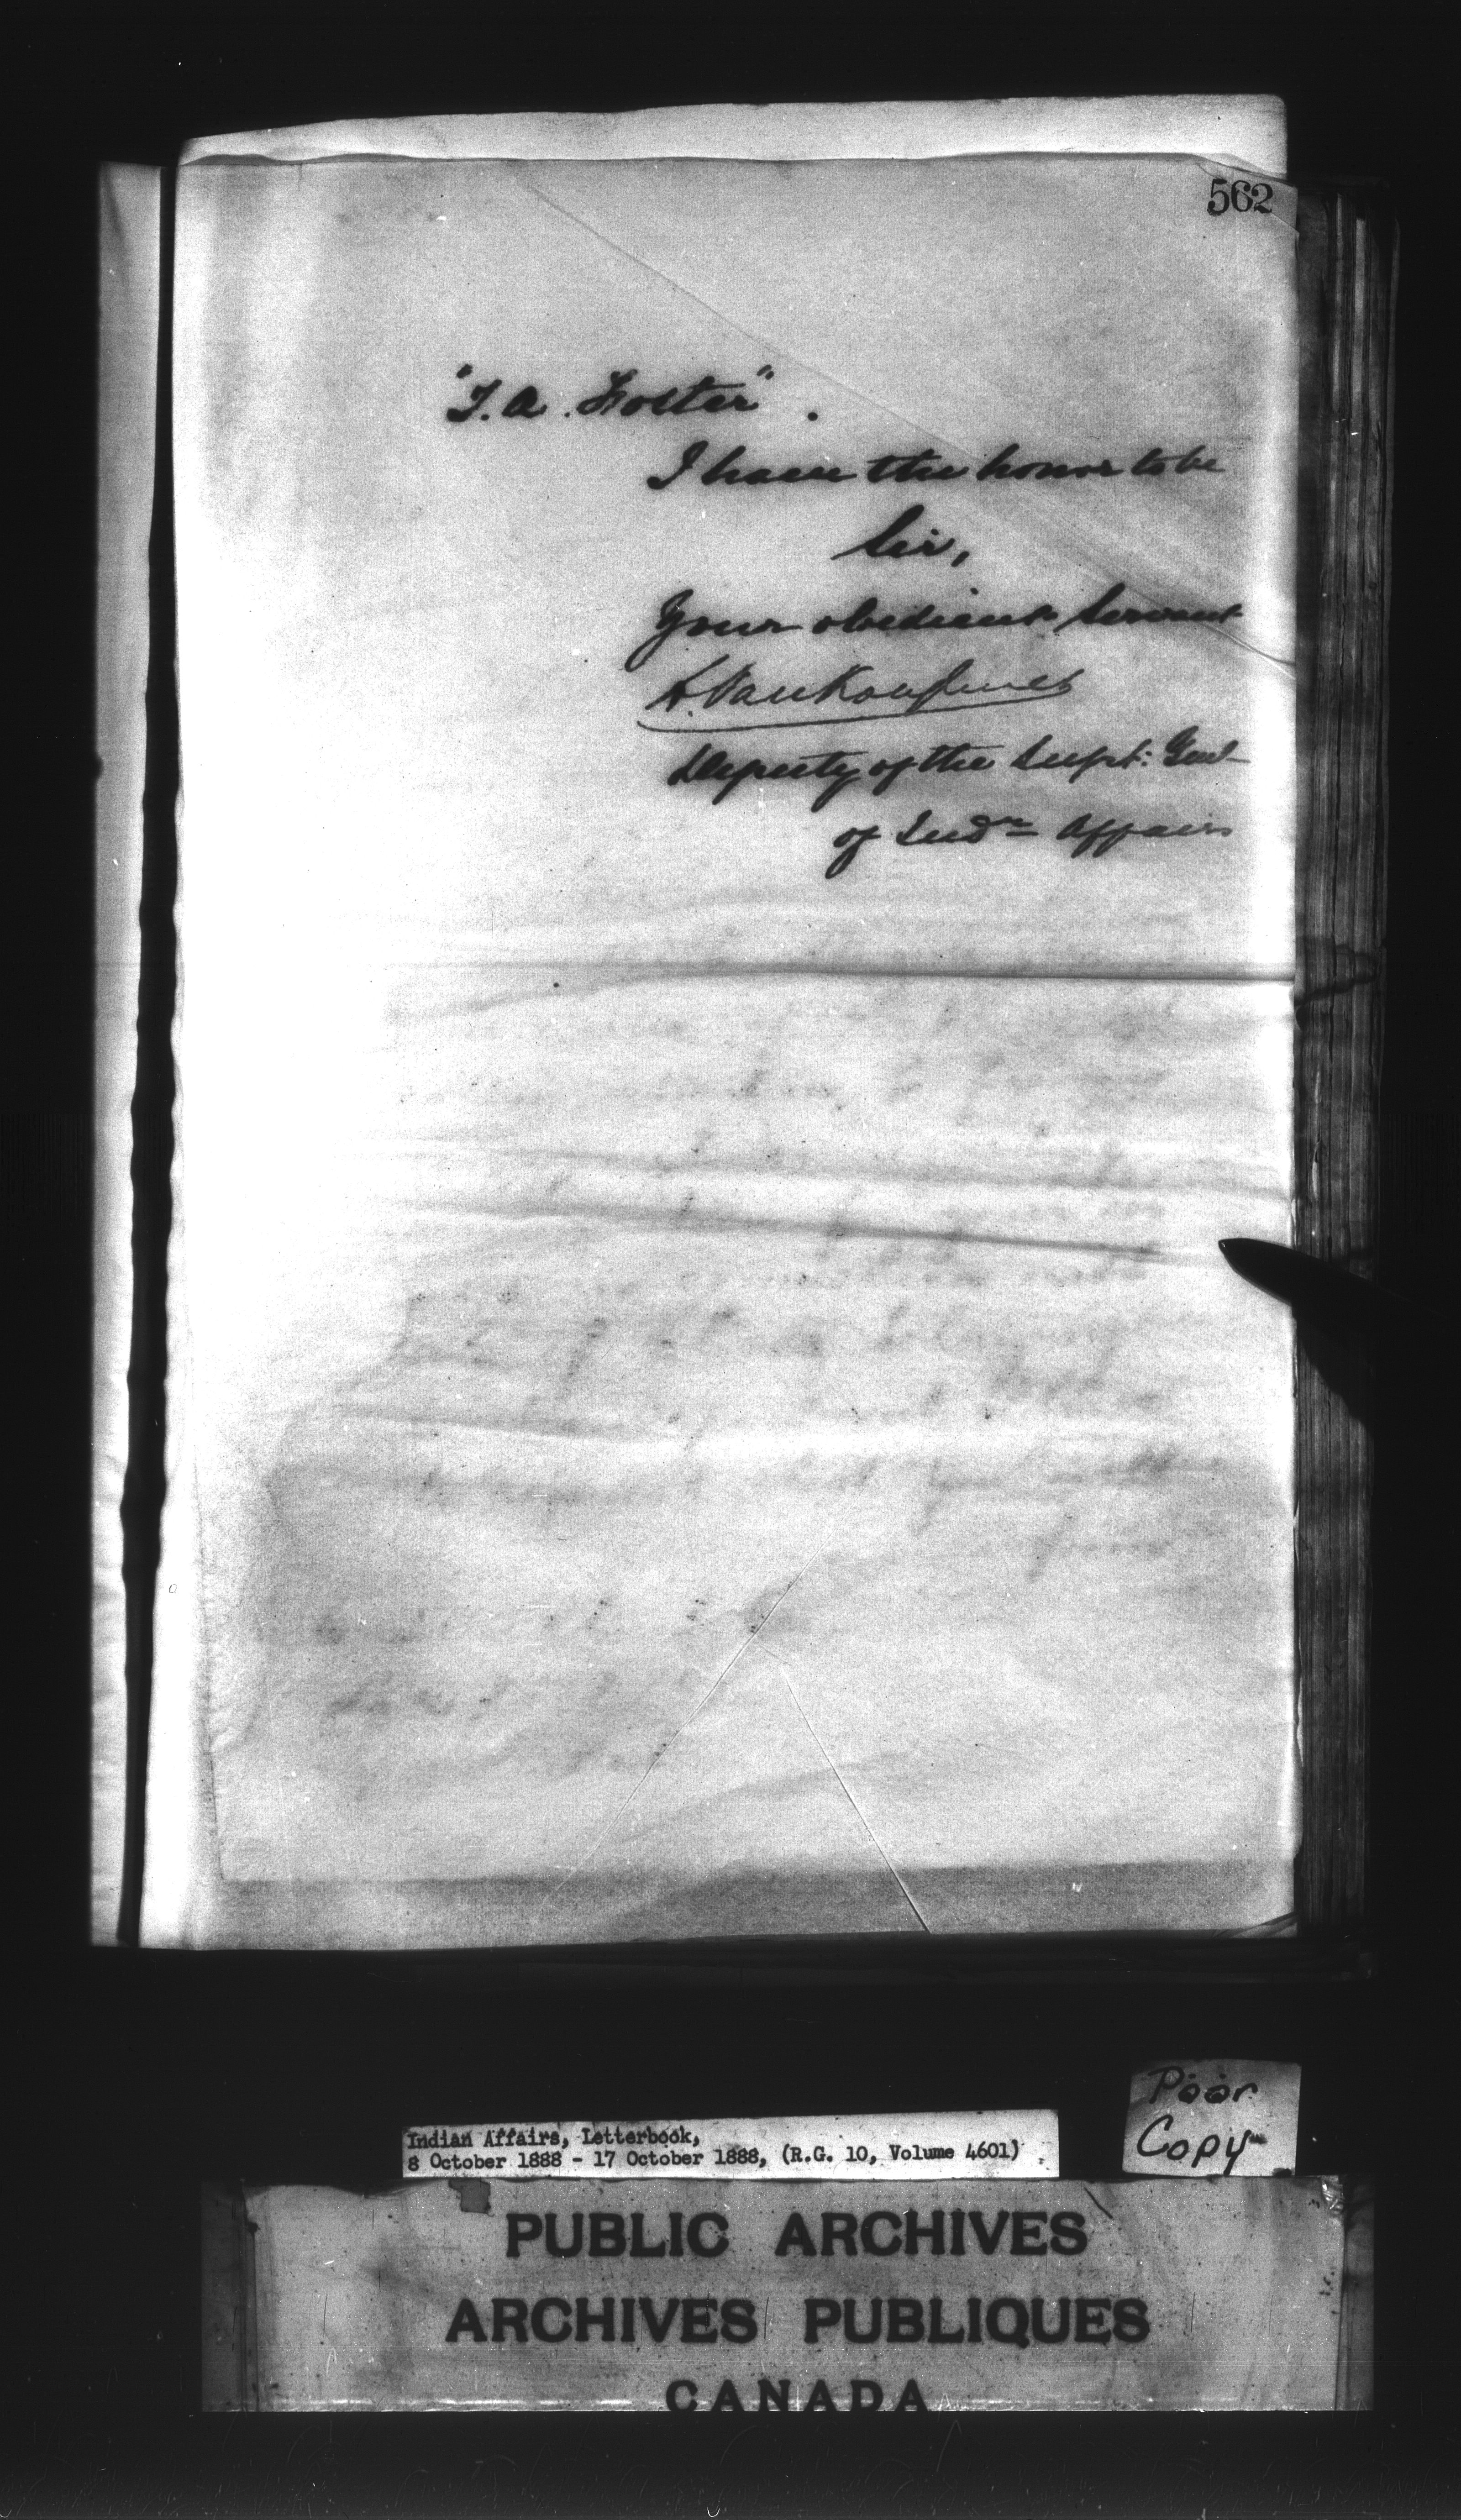 562
"F. A. Foster".
I have the honor to be
Sir,
Your obedient Servant
L. VanKoughnet
Deputy of the Supt: Genl
of Indn Affairs
Poor
Copy
Indian Affairs, Letterbook,
8 October 1888 - 17 October 1888, (R.G. 10, Volume 4601)
PUBLIC ARCHIVES
ARCHIVES PUBLIQUES
CANADA